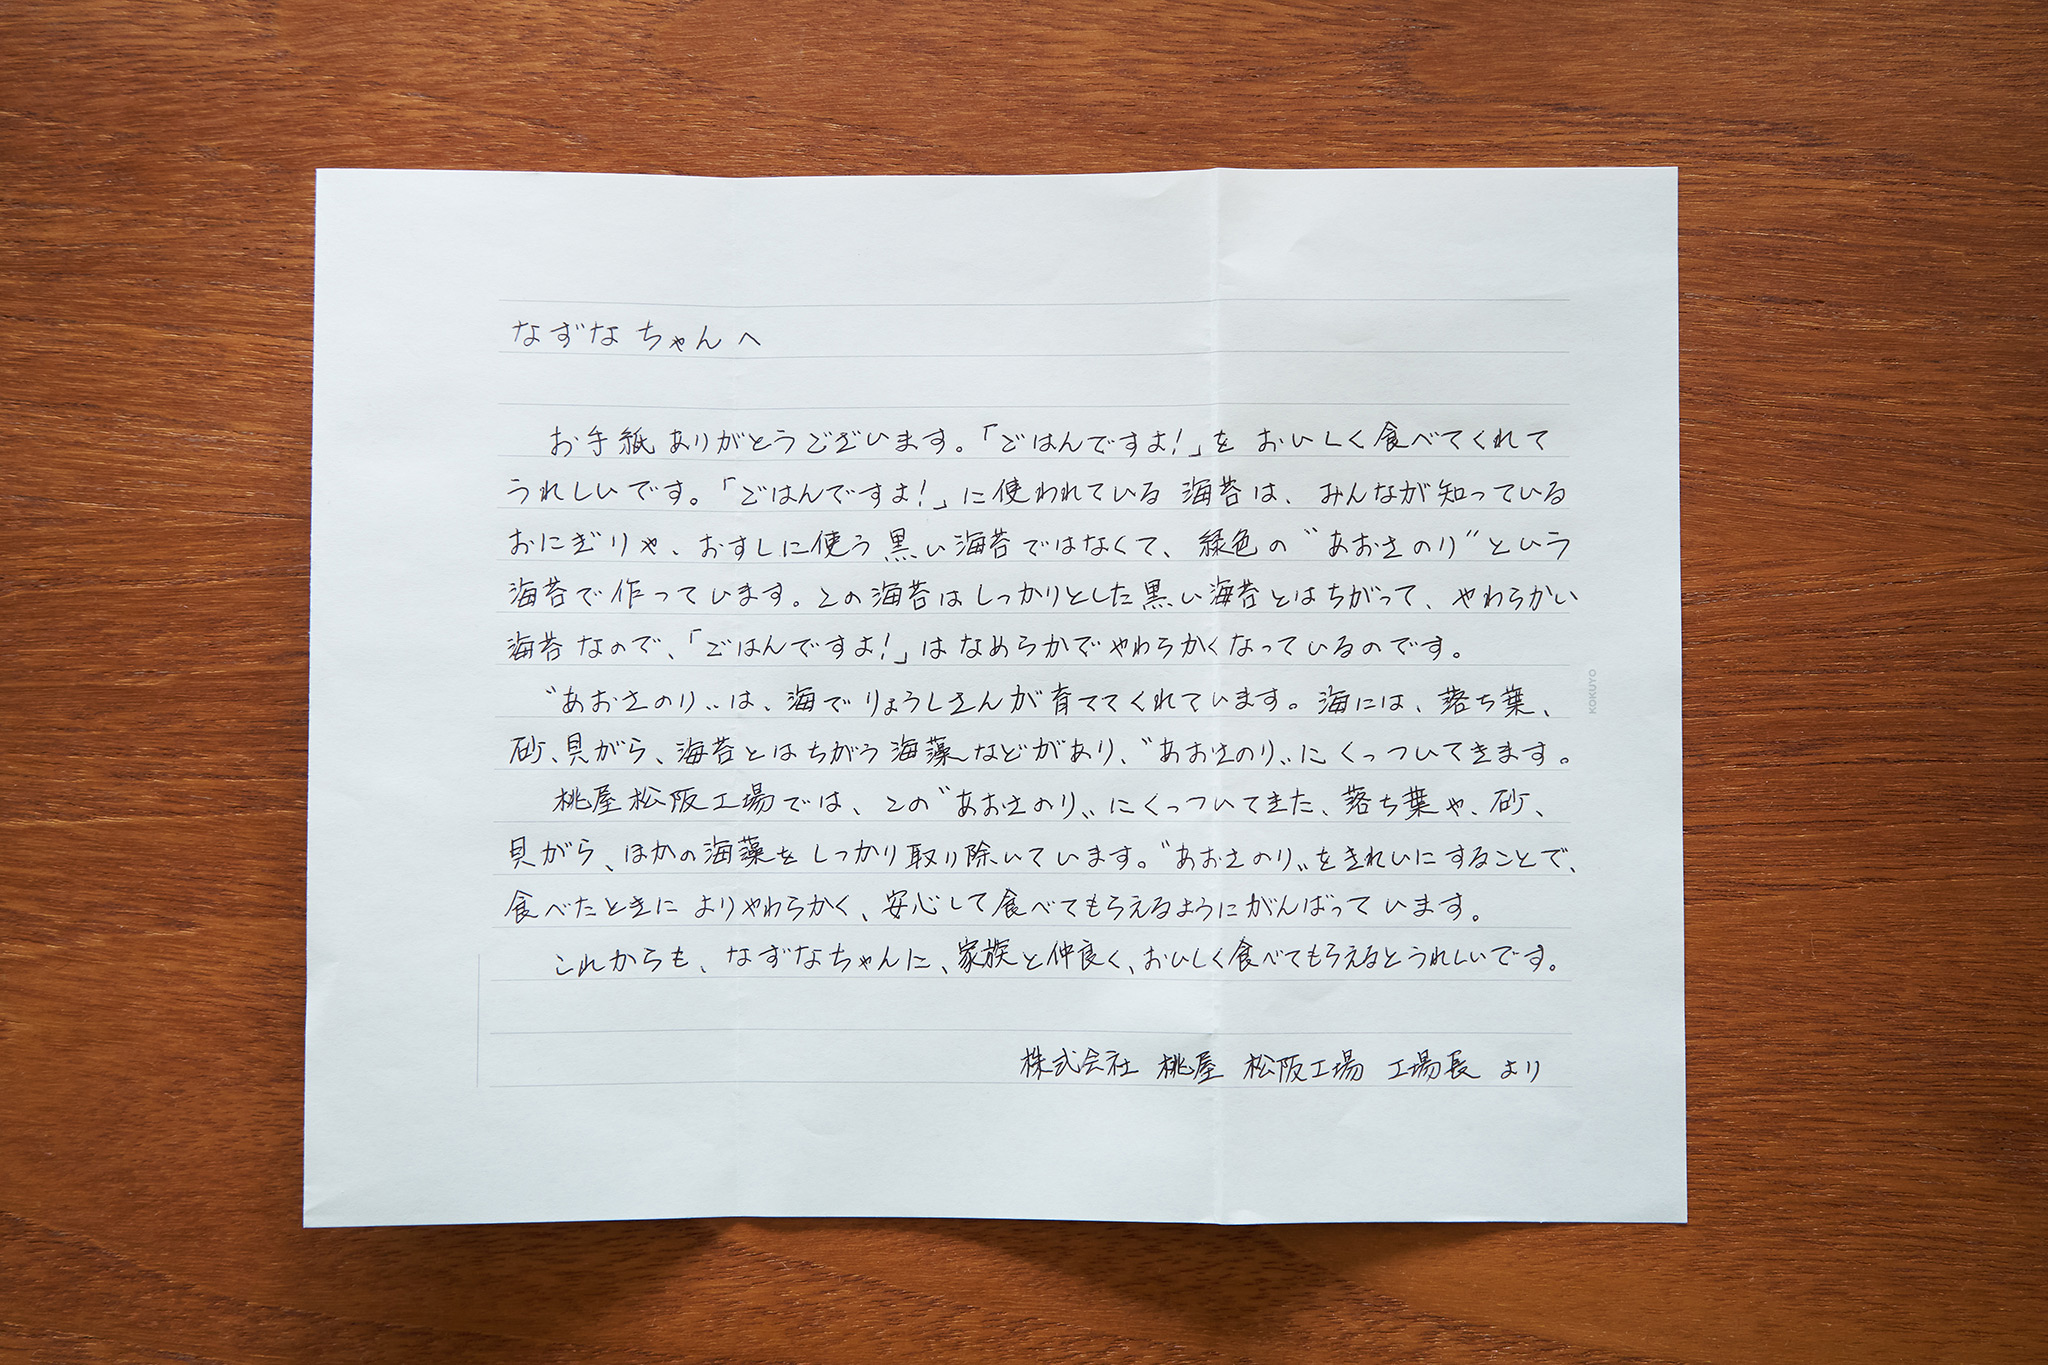 なずなちゃんへ
お手紙ありがとうございます。「ごはんですよ!」を おいしく食べてくれて
うれしいです。「ごはんですよ!」に使われている 海苔は、みんなが知っている
おにぎりや、おすしに使う黒い海苔ではなくて、緑色の〝あおさのり〟という
海苔で作っています。この海苔はしっかりとした黒い海苔とはちがって、やわらかい
海苔なので、「ごはんですよ!」はなめらかでやわらかくなっているのです。
〝あおさのり〟は、海でりょうしさんが育ててくれています。海には、落ち葉、
砂、貝がら、海苔とはちがう海藻などがあり、〝あおさのり〟にくっついてきます。
桃屋松阪工場では、この〝あおさのり〟にくっついてきた、落ち葉や、砂、
貝がら、ほかの海藻をしっかり取り除いています。〝あおさのり〟をきれいにすることで、
食べたときに よりやわらかく、安心して食べてもらえるようにがんばっています。
これからも、なずなちゃんに、家族と仲良く、おいしく食べてもらえるとうれしいです。
株式会社 桃屋 松阪工場 工場長 より
KOKUYO